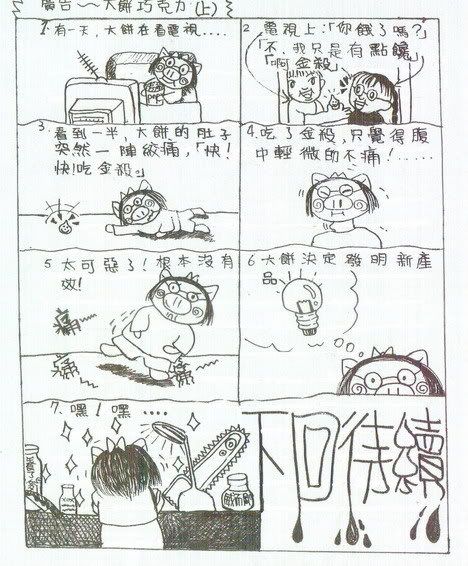 廣告~~大餅巧克力(上)
1.有一天,大餅在看電視....
2 電視上:「你餓了嗎?」
「不,我只是有點饞」
「啊 金殺」
3.看到一半,大餅的肚子
突然一陣絞痛,「快!
快!吃金殺。」
4.吃了金殺,只覺得腹
中輕微的不痛!......
5.太可惡了!根本沒有
效!
痛
痛
痛
6.大餅決定發明新產
品
7.嘿!嘿....
下回待續